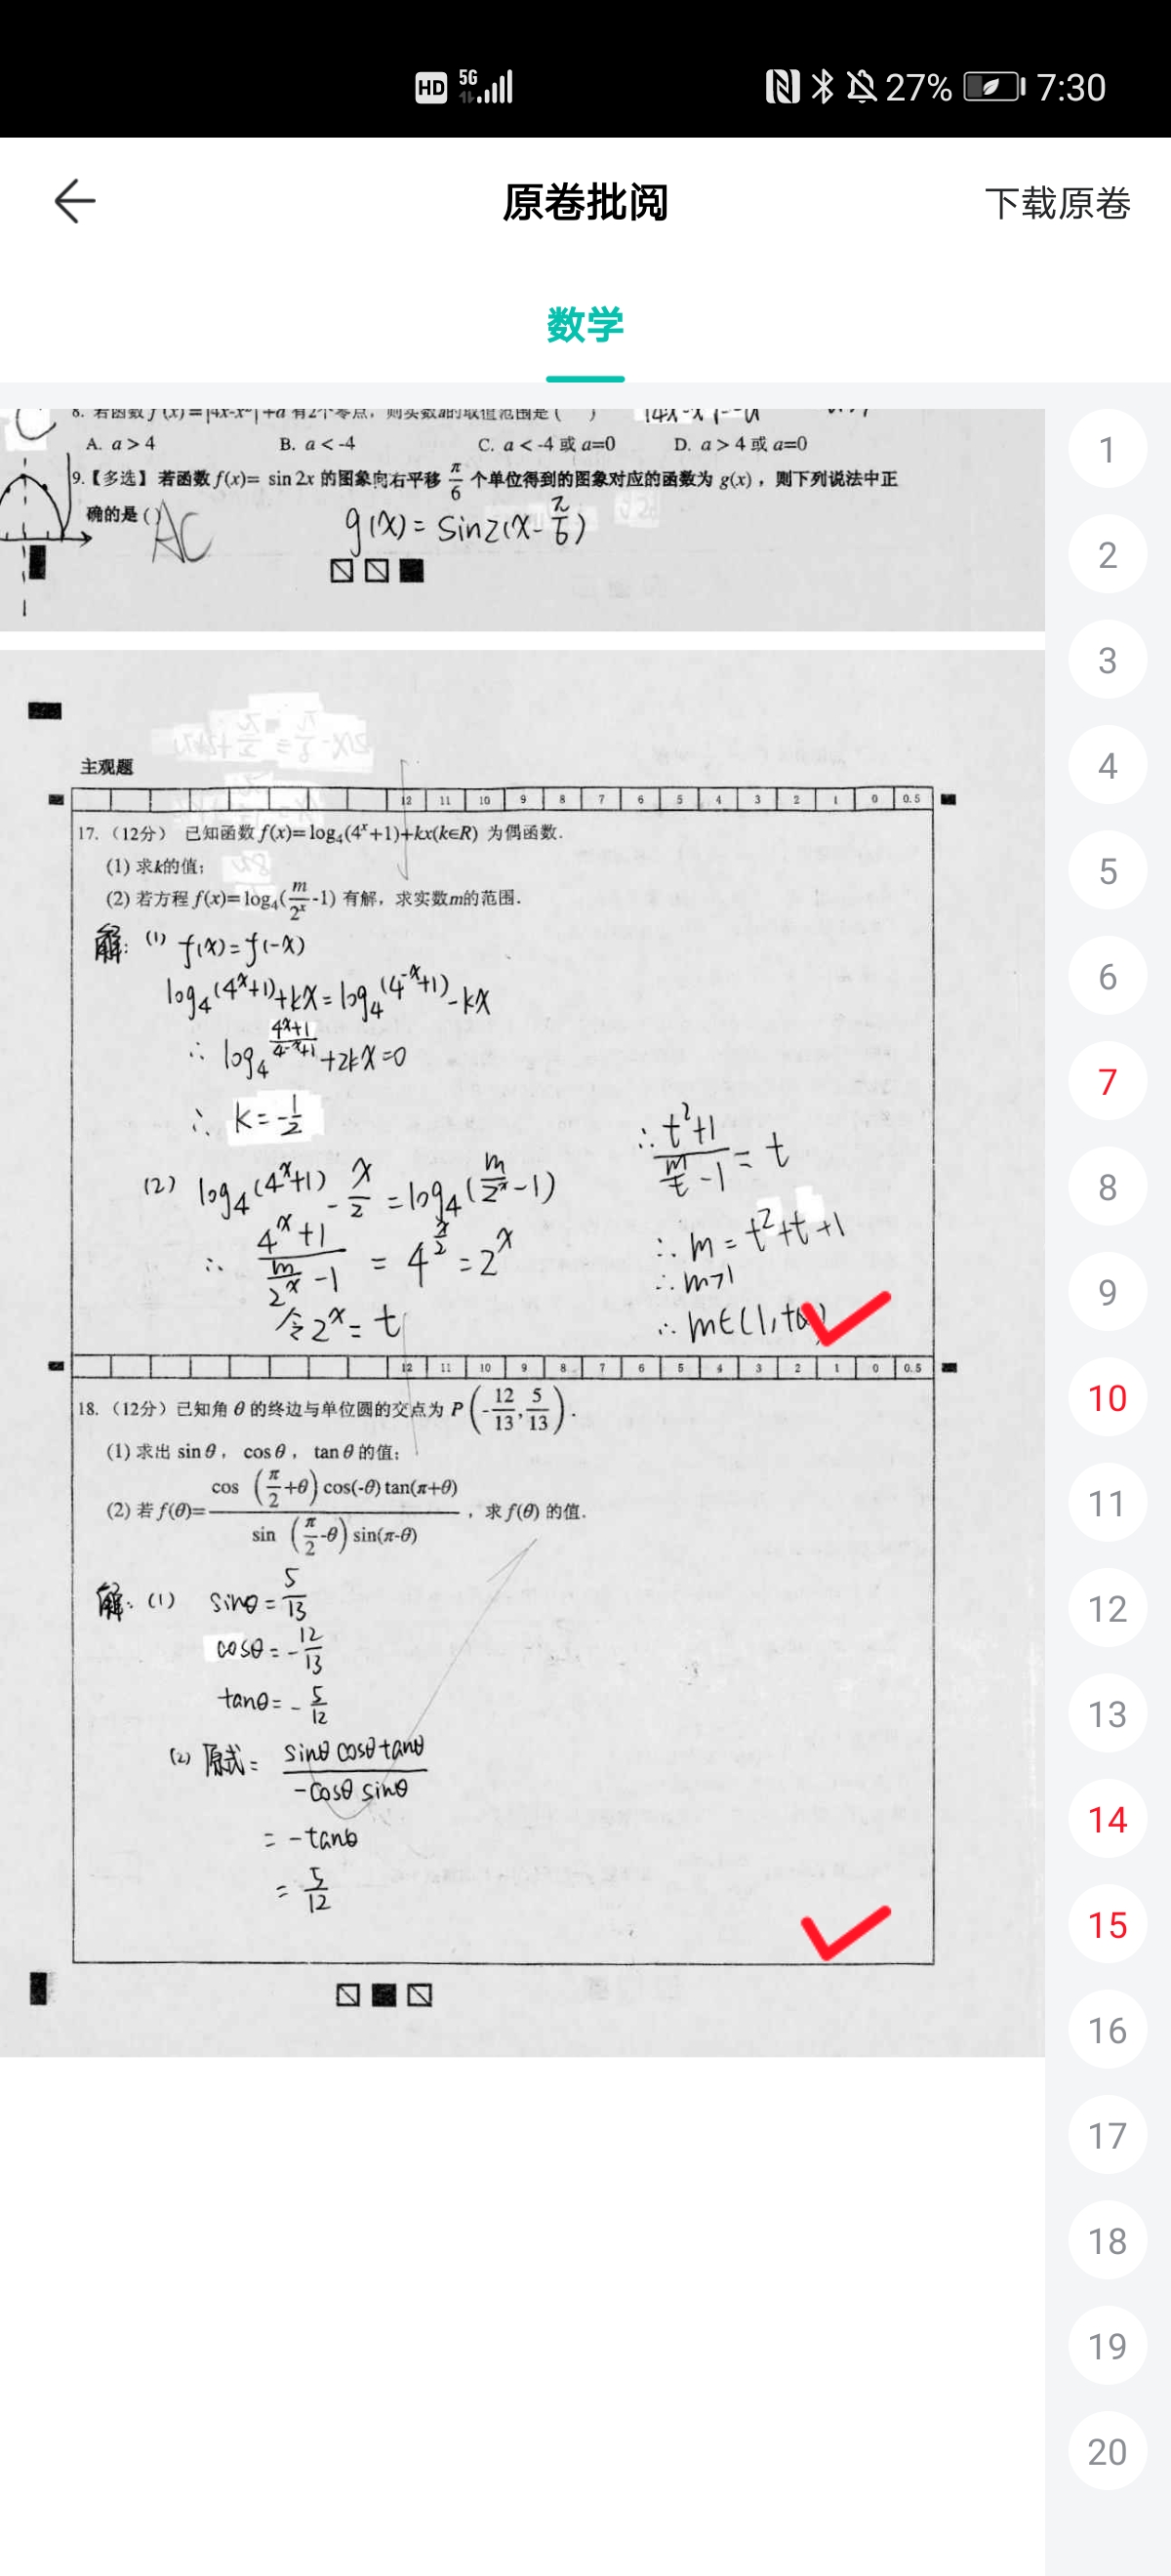 HD 5G 27% 7:30
原卷批阅 下载原卷
数学
8. 若函数 f(x)=|4x-x²|+a 有2个零点，则实数a的取值范围是（ ）
A. a > 4 B. a < -4 C. a < -4 或 a=0 D. a > 4 或 a=0
9.【多选】若函数 f(x)= sin 2x 的图象向右平移 π/6 个单位得到的图象对应的函数为 g(x)，则下列说法中正
确的是 ( ) AC g(x) = sin2(x-π/6)
主观题
12 11 10 9 8 7 6 5 4 3 2 1 0 0.5
17.（12分） 已知函数 f(x)= log₄(4ˣ+1)+kx(k∈R) 为偶函数.
(1) 求k的值；
(2) 若方程 f(x)= log₄(m/2ˣ -1) 有解，求实数m的范围.
解: (1) f(x)=f(-x)
log₄(4ˣ+1)+kx=log₄(4⁻ˣ+1)-kx
∴ log₄ (4ˣ+1)/(4⁻ˣ+1) +2kx=0
∴ k=-1/2
(2) log₄(4ˣ+1) - x/2 = log₄(m/2ˣ -1)
∴ (4ˣ+1)/(m/2ˣ -1) = 4^(x/2) = 2ˣ
令2ˣ= t
∴ (t²+1)/(m/t -1) = t
∴ m = t²+t+1
∴ m>1
∴ m∈(1,+∞)
12 11 10 9 8 7 6 5 4 3 2 1 0 0.5
18.（12分）已知角 θ 的终边与单位圆的交点为 P(-12/13, 5/13).
(1) 求出 sin θ， cos θ， tan θ 的值；
(2) 若 f(θ)= cos(π/2+θ) cos(-θ) tan(π+θ) / sin(π/2-θ) sin(π-θ) ，求 f(θ) 的值.
解: (1) sinθ = 5/13
cosθ = -12/13
tanθ= - 5/12
(2) 原式= sinθ cosθ tanθ / -cosθ sinθ
= -tanθ
= 5/12
1
2
3
4
5
6
7
8
9
10
11
12
13
14
15
16
17
18
19
20